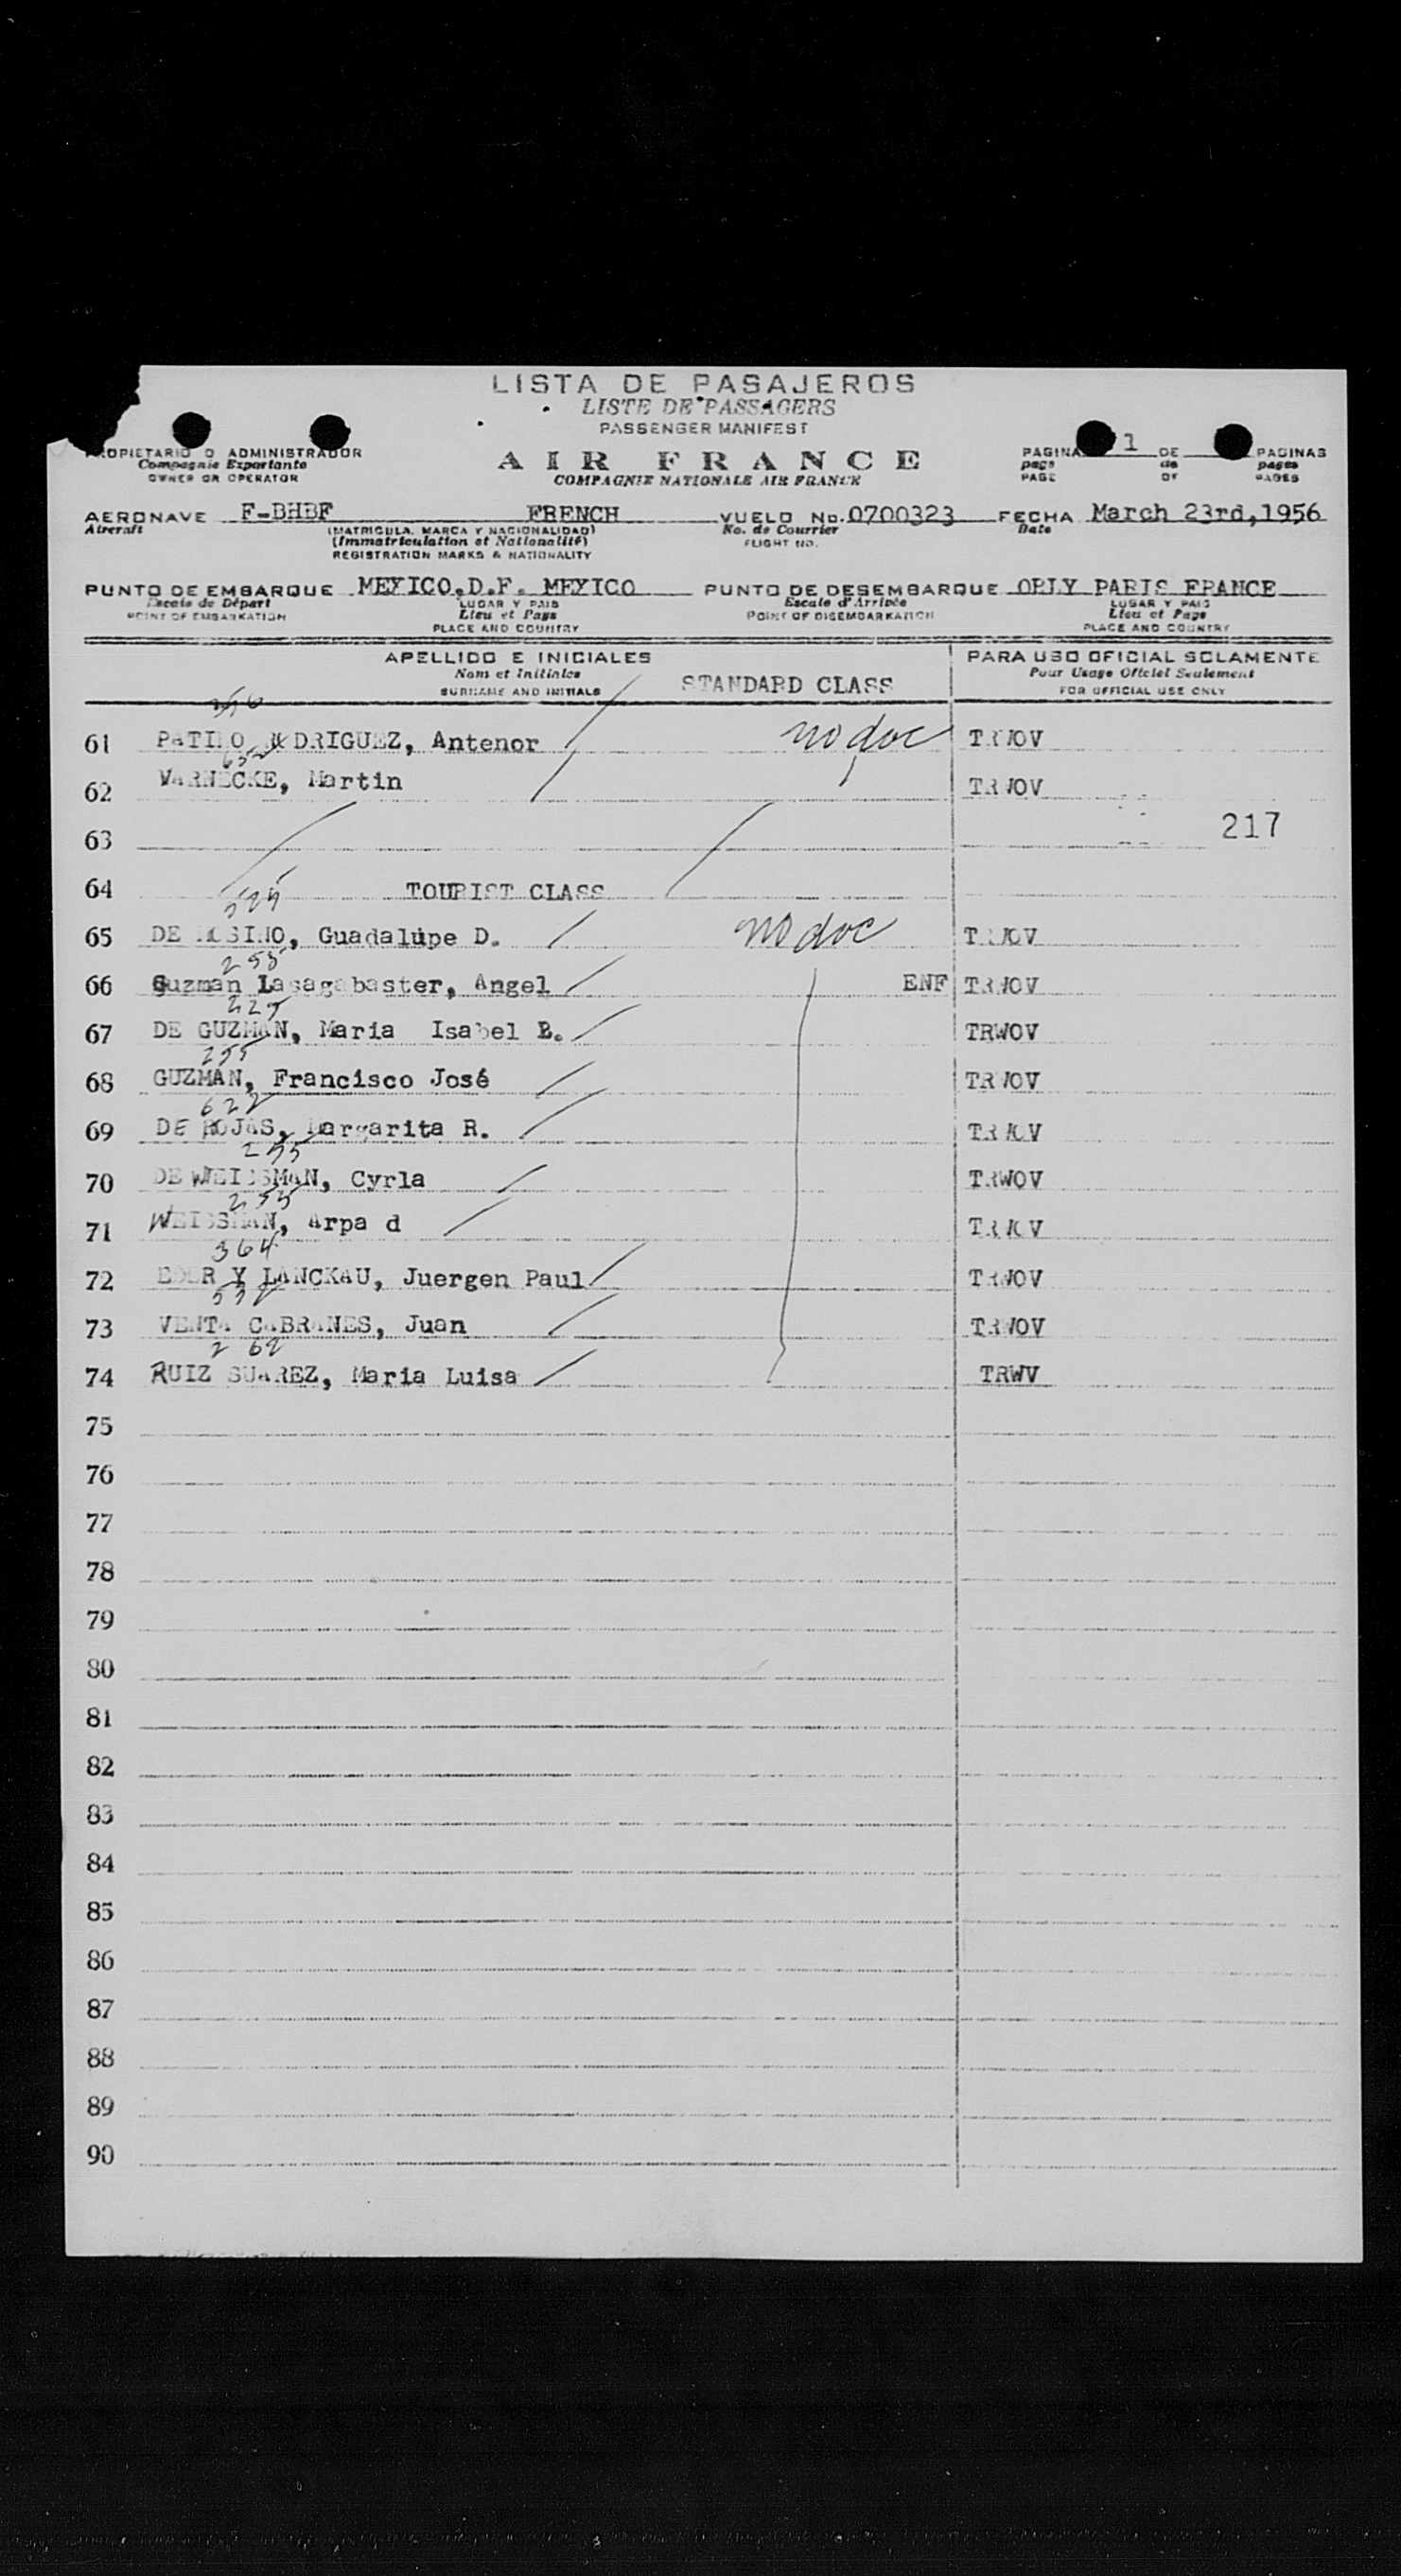 LISTA DE PASAJEROS
LISTE DE PASSAGERS
PASSENGER MANIFEST
PROPIETARIO O ADMINISTRADOR
Compagnie Exportante
OWNER OR OPERATOR
AIR FRANCE
COMPAGNIE NATIONALE AIR FRANCE
PAGINA 1 DE PAGINAS
page de pages
PAGE OF PAGES
AERONAVE F-BHBF FRENCH VUELO No. 0700323 FECHA March 23rd, 1956
Aircraft (MATRICULA, MARCA Y NACIONALIDAD) No. de Courrier Date
(Immatriculation et Nationalité) FLIGHT NO.
REGISTRATION MARKS & NATIONALITY
PUNTO DE EMBARQUE MEXICO, D.F. MEXICO PUNTO DE DESEMBARQUE ORLY PARIS FRANCE
Escale de Départ LUGAR Y PAIS Escale d'Arrivée LUGAR Y PAIS
POINT OF EMBARKATION Lieu et Pays POINT OF DISEMBARKATION Lieu et Pays
PLACE AND COUNTRY PLACE AND COUNTRY
APELLIDO E INICIALES PARA USO OFICIAL SOLAMENTE
Nom et Initiales STANDARD CLASS Pour Usage Officiel Seulement
SURNAME AND INITIALS FOR OFFICIAL USE ONLY
61 PATINO RODRIGUEZ, Antenor no doc TRWOV
62 WARNECKE, Martin TRWOV
63 217
64 TOURIST CLASS
525
65 DE MOSINO, Guadalupe D. no doc TRWOV
255
66 Guzman Lasagabaster, Angel ENF TRWOV
225
67 DE GUZMAN, Maria Isabel B. TRWOV
255
68 GUZMAN, Francisco José TRWOV
622
69 DE ROJAS, Margarita R. TRWOV
255
70 DE WEISSMAN, Cyrla TRWOV
255
71 WEISSMAN, Arpa d TRWOV
364
72 EDER Y LANCKAU, Juergen Paul TRWOV
532
73 VENTA CABRANES, Juan TRWOV
262
74 RUIZ SUAREZ, Maria Luisa TRWV
75
76
77
78
79
80
81
82
83
84
85
86
87
88
89
90